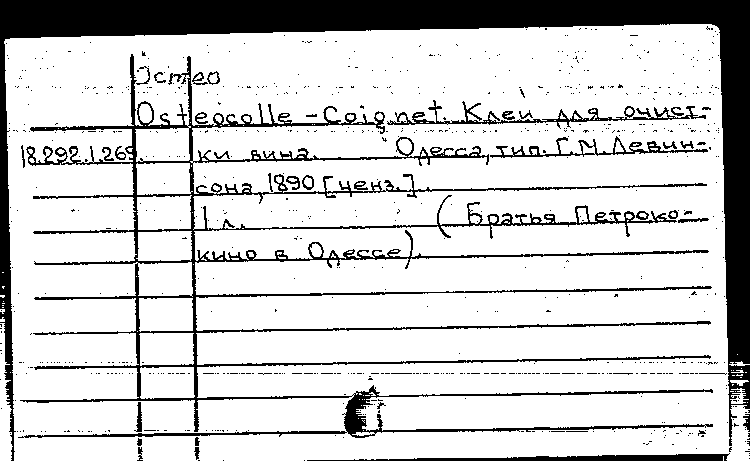 Остео
Osteocolle - Coignet. Клей для очист-
18.292.1.269. ки вина. Одесса, тип. Г.М. Левин-
сона, 1890 [ценз.].
1 л. (Братья Петроко-
кино в Одессе).